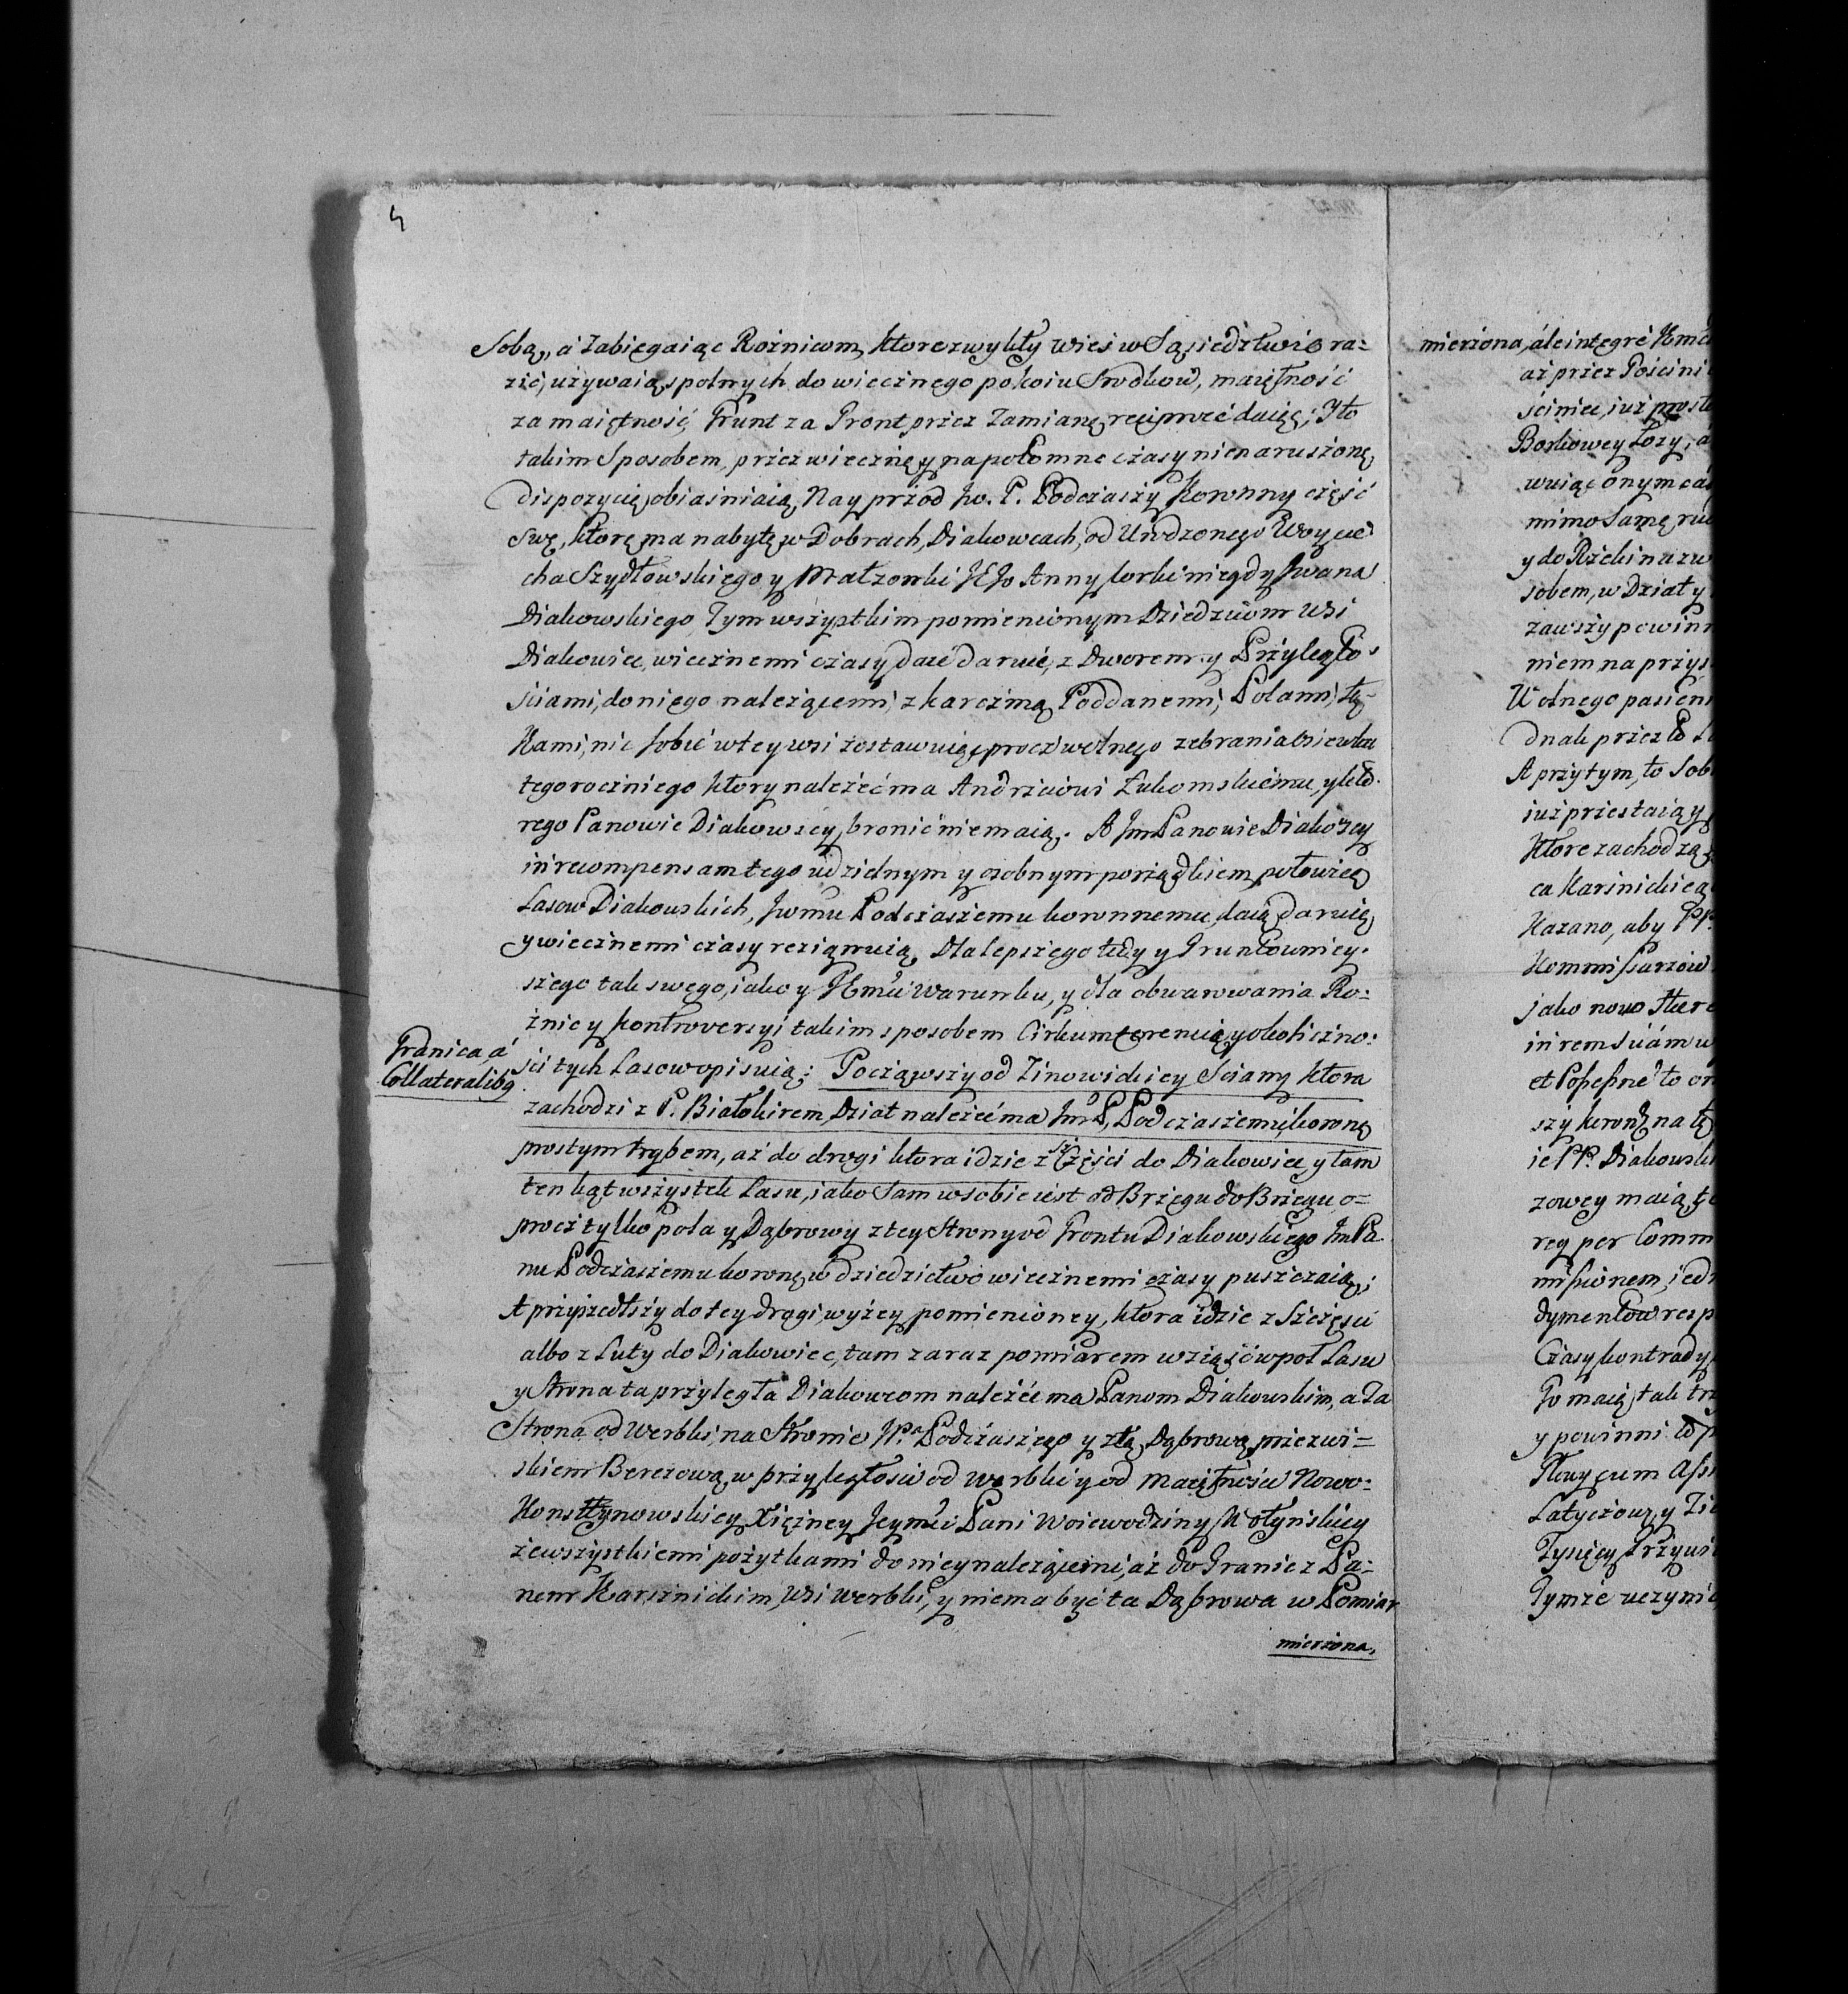 4
Sobą, á zabiegaiąc Rożnicom, ktore zwykły wieś w Sąsiedztwie ra=
zić, używaią spolnych do wiecznego pokoiu Srodkow, maiętność
za maiętność, Grunt za Gront przez Zamianę reciprocé daiąc; Y to
takim Sposobem, przez wieczną y napotomne czasy nienaruszoną
dispozycię obiaśniaią, Nay przod Jw. P. Podczaszy Koronny część
swę, ktorę ma nabytę w Dobrach, Diakowcach, od Urodzonego Woycie
cha Szydłowskiego y Małzonki JEJo Anny Corki niegdy Jwana
Diakowskiego Tym wszystkim pomienionym Dziedzicom Wsi
Diakowiec, wiecznemi czasy daie daruie, z Dworem y Przyległo
sciami, do niego nalezącemi z karczmą, Poddanemi, Polami, Łą=
Kami, nic sobie w tey wsi zostawuiąc procz wolnego zebrania Osiewku
tegorocznego ktory należéć ma Andrzeiowi Łukomskiemu, y kto
rego Panowie Diakowscy, bronić nie maią. A Jm Panowie Diakoscy
in recompensam tego udzielnym y osobnym porządkiem połowicę
Lasow Diakowskich, Jwmu Podczaszemu koronnemu, daią daruią
y wiecznemi czasy rezignuią, Dla lepszego tedy y Gruntowniey=
szego tak swego, iako y JEmu Warunku, y dla obwarowania Ro=
żnic y kontrowersyi takim sposobem Cirkumferencią y okoliczno=
Granica á
Collateralibq
sci tych Lasow opisuią: Począwszy od Zinowickiey Sciany ktora
zachodzi z P. Białskirem, Dział należéć ma Jm P. Podczaszemu koronę
prostym trybem, aż do drogi ktora idzie z Częsci do Diakowiec, y tam
ten kąt wszystek Lasu, iako Sam w sobie iest od Brzegu do Brzegu o=
procz tylko pola y Dąbrowy z tey Strony od Grontu Diakowskiego Jm Pa
nu Podczaszemu koronę w dziedzictwo wiecznemi czasy puszczaią;
A przyszedłszy do tey drogi wyżey pomienioney, ktora idzie z Szczęsci
albo z Luty do Diakowiec, tam zaraz pomiarem wziąść w poł Lasu
y Strona ta przyległa Diakowcom należéć ma Panom Diakowskim, a Ta
Strona od Werbki, na Stronie JP.a Podczaszego y z tą Dąbrową przezwi=
skiem Berezową, w przyległosci od Werbki y od Maiętnosci Nowo=
Konstynowskiey Xiężney Jeymći Pani Woiewodziny Wołyńskiey
ze wszystkiemi pożytkami do niey nalezącemi, aż do Granic z Pa=
nem Karsznickim, Wsi Werbki, y niema być ta Dąbrowa w Pomiar
mierzona,
mierzona, ále integré
aż przez Pościni
ściniec, iuż prosto
Borkowey Łozy, á
wuiąc Onym
mimo Samę
y do Rzeki nazw
sobem, w Dział y
zawszy powinn
niem na przys
Wolnego pasieni
dnak przez to
A przytym, to Sob
iuż przestaią y
Ktore zachodzą
ca Karsnickieg
Kazano, aby PP.
Kommissarzow
jako novo Hære
in rem suám
et Posessne to
szy koron na tę
ie PP. Diakowsk
zowey maią,
reg per Comm
missionem, ied
dymentow resp
Czasy, kontrady
Jo maią, tak
y powinni to
cum Assi
Latyczow, y
Tysięcy Grzywi
Tymże uczyni